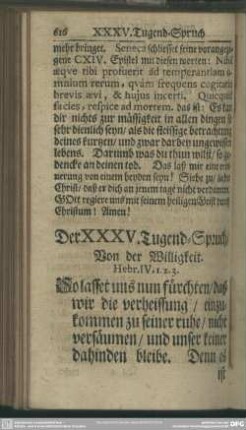 616 XXXV. Tugend-Spruch
mehr bringet. Seneca schliesset seine vorange-
gene CXIV. Epistel mit diesen worten: Nihil
æqve tibi profuerit ad temperantiam o-
mnium rerum, qvàm freqvens cogitatio
brevis ævi, & hujus incerti. Quicquid
facies, respice ad mortem. das ist: Es kan
dir nichts zur mässigkeit in allen dingen so
sehr dienlich seyn / als die fleissige betrachtung
deines kurtzen / und zwar darbey ungewissen
lebens. Darumb was du thun wilt / so ge-
dencke an deinen tod. Das laß mir eine
nerung von einem heyden seyn! Siehe zu / lieber
Christ / daß er dich an jenem tage nicht verdamme.
GOtt regiere uns mit seinem heiligen Geist durch
Christum! Amen!
Der XXXV. Tugend-Spruch
Von der Willigkeit.
Hebr. IV. 1. 2. 3.
So lasset uns nun fürchten / daß
wir die verheissung / einzu-
kommen zu seiner ruhe / nicht
versäumen / und unser keiner
dahinden bleibe. Denn es
ist